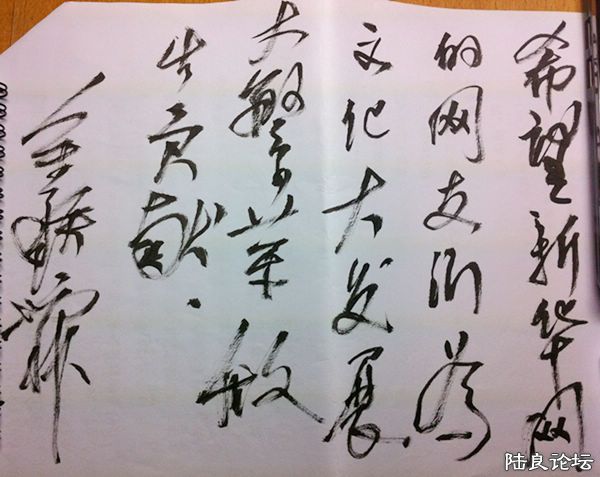 希望新华网
的网友们为
文化大发展
大繁荣做
出贡献.
陆良论坛